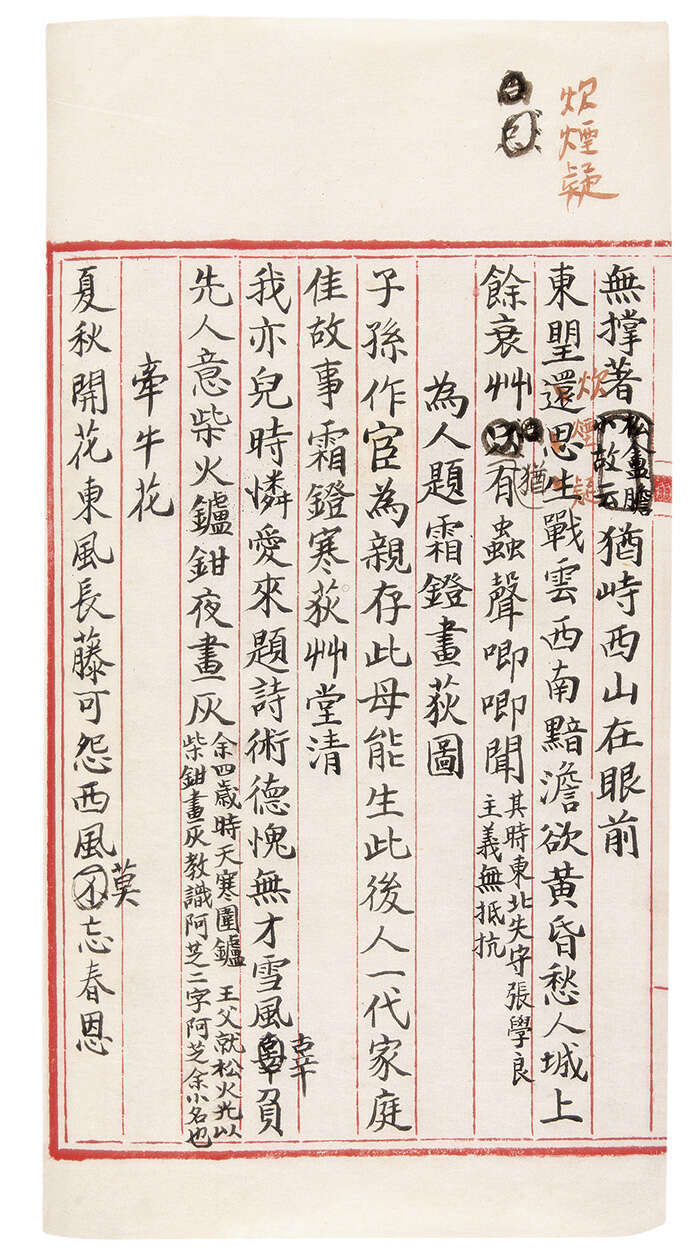 炊煙疑
無撐著猶峙西山在眼前
東朢還思生戰雲西南黯澹欲黃昏愁人城上
炊煙疑
餘衰艸只有蟲聲唧唧聞
猶
其時東北失守張學良
主義無抵抗
為人題霜鐙畫荻圖
子孫作官為親存此母能生此後人一代家庭
佳故事霜鐙寒荻艸堂清
我亦兒時憐愛來題詩術德愧無才雪風辜負
先人意柴火鑪鉗夜畫灰
余四歲時天寒圍鑪 王父就松火光以
柴鉗畫灰教識阿芝二字阿芝余小名也
牽牛花
夏秋開花東風長藤可怨西風不忘春恩
莫